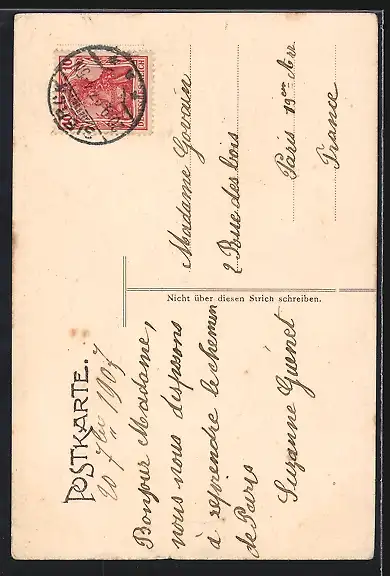 POSTKARTE.
20 7bre 1907
Bonjour Madame,
nous nous disposons
à reprendre le chemin
de Paris
Suzanne Guénet
Nicht über diesen Strich schreiben.
Madame Govain
2 Rue des bois
Paris 19em Arr
France
10